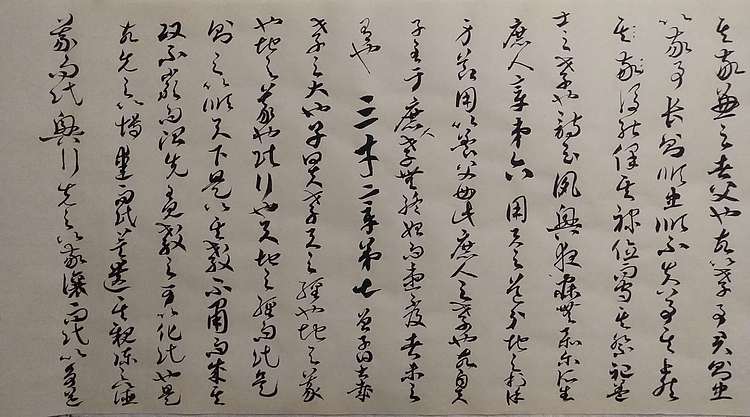 其敬兼之者父也故以孝事君則忠
以敬事長則順忠順不失以事其上然
其敬後能保其祿位而守其祭祀蓋
士之孝也詩云夙興夜寐無忝爾所生
庶人章第六 用天之道分地之利謹
身節用以養父母此庶人之孝也故自天
子至于庶人孝無終始而患不及者未之
有也 三才章第七 曾子曰甚哉
孝之大也子曰夫孝天之經也地之義
也地之義也民行也天地之經而民是
則之以順天下是以其教不肅而成其
政不嚴而治先王見教之可以化民也是
故先之以博愛而民莫遺其親陳之以德
義而民興行先之以敬讓而民